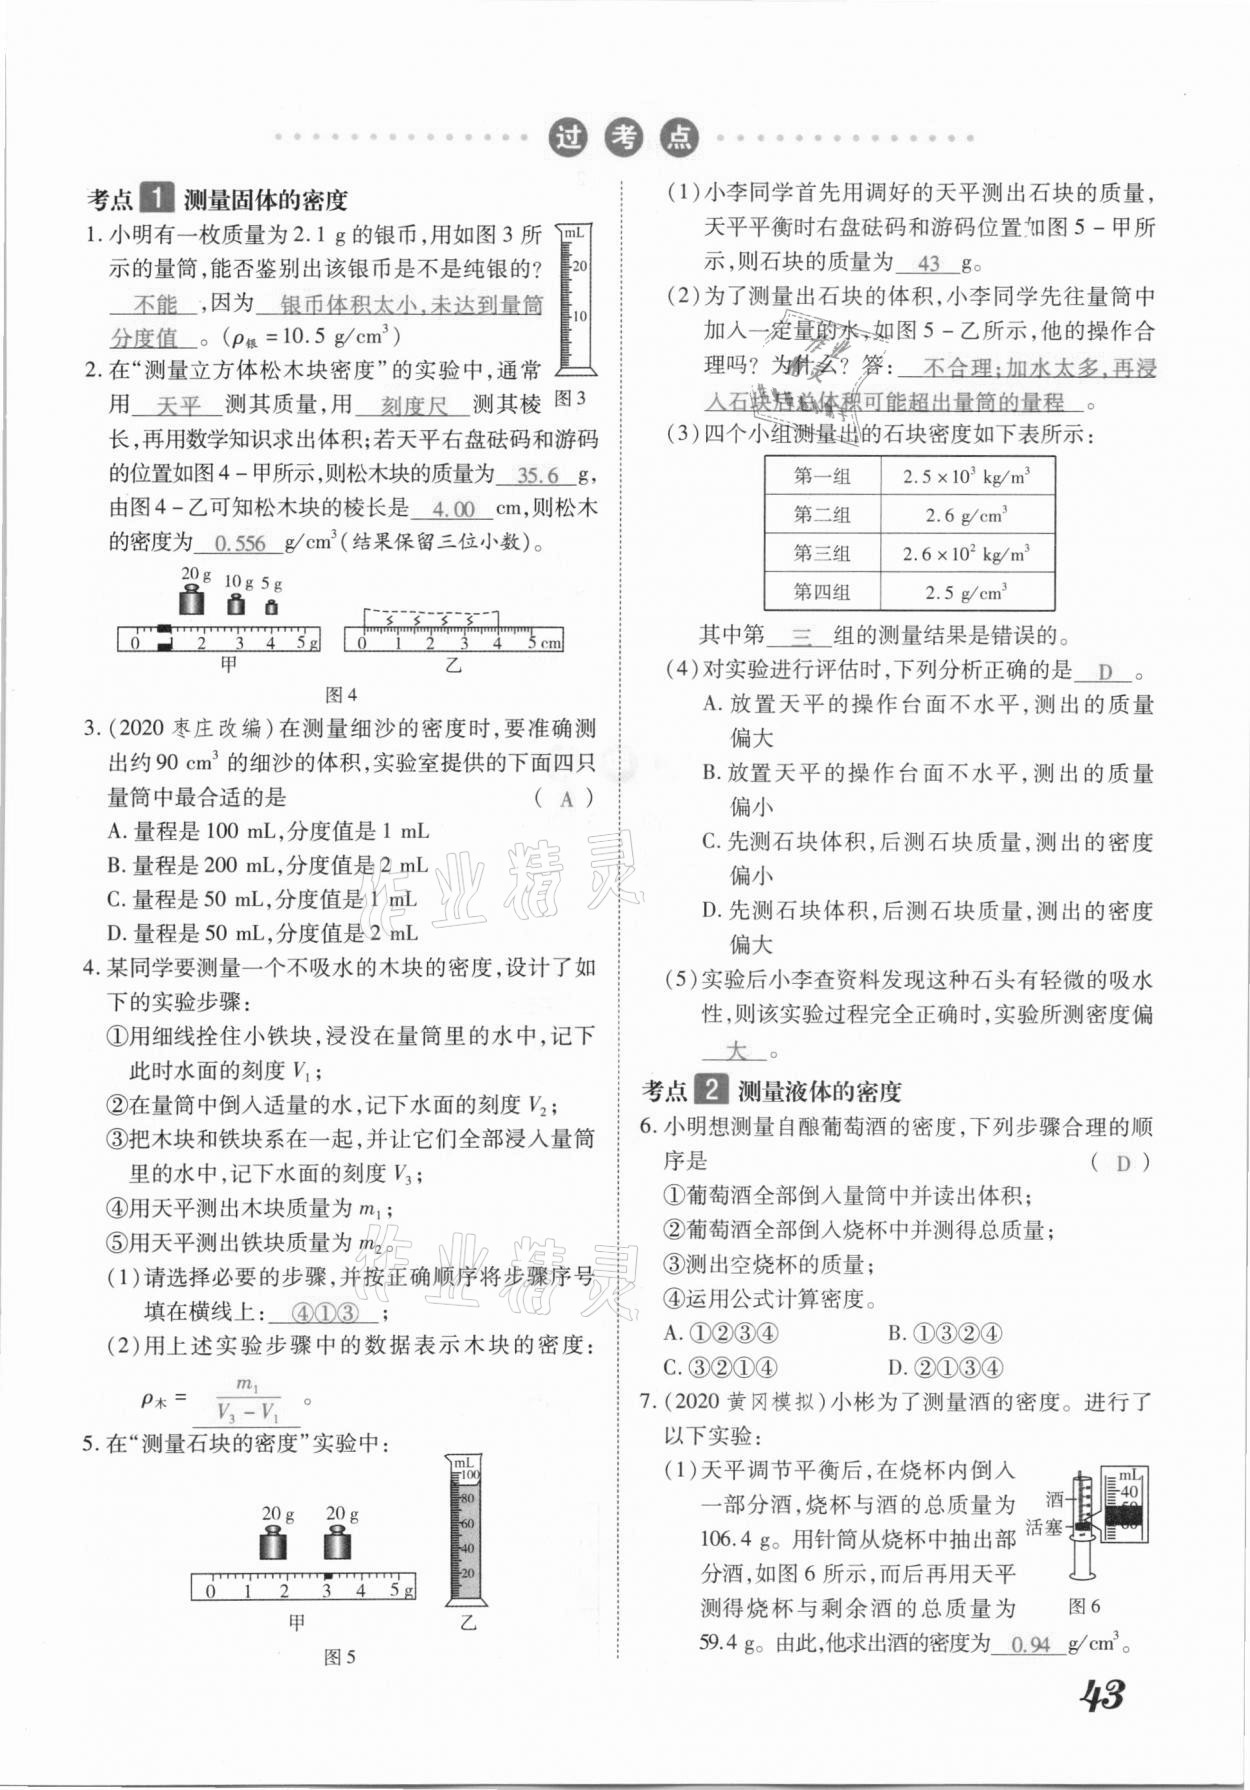 过考点
考点 1 测量固体的密度
1. 小明有一枚质量为2.1 g的银币,用如图3所
示的量筒,能否鉴别出该银币是不是纯银的?
不能,因为 银币体积太小,未达到量筒
分度值。(ρ银=10.5 g/cm³)
mL
20
10
图3
2. 在“测量立方体松木块密度”的实验中,通常
用 天平 测其质量,用 刻度尺 测其棱
长,再用数学知识求出体积;若天平右盘砝码和游码
的位置如图4-甲所示,则松木块的质量为 35.6 g,
由图4-乙可知松木块的棱长是 4.00 cm,则松木
的密度为 0.556 g/cm³(结果保留三位小数)。
20 g 10 g 5 g
0 1 2 3 4 5 g
甲
0 1 2 3 4 5 cm
乙
图4
3. (2020枣庄改编)在测量细沙的密度时,要准确测
出约90 cm³的细沙的体积,实验室提供的下面四只
量筒中最合适的是 ( A )
A. 量程是100 mL,分度值是1 mL
B. 量程是200 mL,分度值是2 mL
C. 量程是50 mL,分度值是1 mL
D. 量程是50 mL,分度值是2 mL
4. 某同学要测量一个不吸水的木块的密度,设计了如
下的实验步骤:
①用细线拴住小铁块,浸没在量筒里的水中,记下
此时水面的刻度V₁;
②在量筒中倒入适量的水,记下水面的刻度V₂;
③把木块和铁块系在一起,并让它们全部浸入量筒
里的水中,记下水面的刻度V₃;
④用天平测出木块质量为m₁;
⑤用天平测出铁块质量为m₂。
(1)请选择必要的步骤,并按正确顺序将步骤序号
填在横线上: ④①③ ;
(2)用上述实验步骤中的数据表示木块的密度:
ρ木= m₁/(V₃-V₁) 。
5. 在“测量石块的密度”实验中:
20 g 20 g
0 1 2 3 4 5 g
甲
mL
100
80
60
40
20
乙
图5
(1)小李同学首先用调好的天平测出石块的质量,
天平平衡时右盘砝码和游码位置如图5-甲所
示,则石块的质量为 43 g。
(2)为了测量出石块的体积,小李同学先往量筒中
加入一定量的水,如图5-乙所示,他的操作合
理吗?为什么?答: 不合理;加水太多,再浸
入石块后总体积可能超出量筒的量程 。
(3)四个小组测量出的石块密度如下表所示:
第一组 2.5×10³ kg/m³
第二组 2.6 g/cm³
第三组 2.6×10² kg/m³
第四组 2.5 g/cm³
其中第 三 组的测量结果是错误的。
(4)对实验进行评估时,下列分析正确的是 D 。
A. 放置天平的操作台面不水平,测出的质量
偏大
B. 放置天平的操作台面不水平,测出的质量
偏小
C. 先测石块体积,后测石块质量,测出的密度
偏小
D. 先测石块体积,后测石块质量,测出的密度
偏大
(5)实验后小李查资料发现这种石头有轻微的吸水
性,则该实验过程完全正确时,实验所测密度偏
大 。
考点 2 测量液体的密度
6. 小明想测量自酿葡萄酒的密度,下列步骤合理的顺
序是 ( D )
①葡萄酒全部倒入量筒中并读出体积;
②葡萄酒全部倒入烧杯中并测得总质量;
③测出空烧杯的质量;
④运用公式计算密度。
A. ①②③④ B. ①③②④
C. ③②①④ D. ②①③④
7. (2020黄冈模拟)小彬为了测量酒的密度。进行了
以下实验:
(1)天平调节平衡后,在烧杯内倒入
一部分酒,烧杯与酒的总质量为
106.4 g。用针筒从烧杯中抽出部
分酒,如图6所示,而后再用天平
测得烧杯与剩余酒的总质量为
59.4 g。由此,他求出酒的密度为 0.94 g/cm³。
酒
活塞
mL
40
图6
作业精灵
作业精灵
43